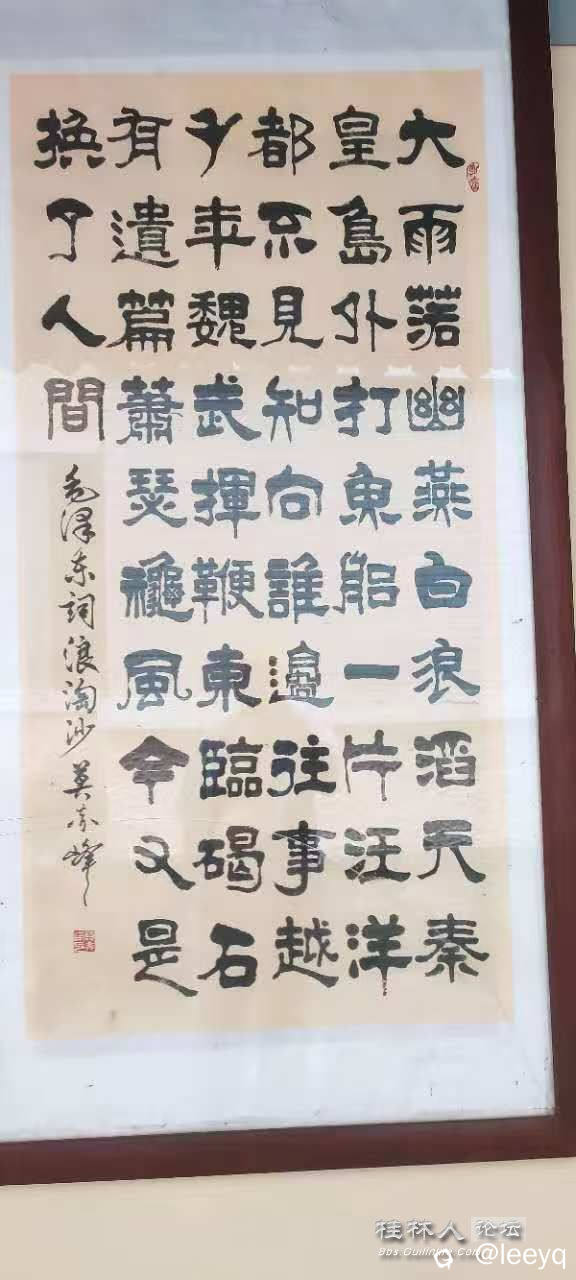 大雨落幽燕白浪滔天秦
皇島外打魚船一片汪洋
都不見知向誰邊往事越
千年魏武揮鞭東臨碣石
有遺篇蕭瑟龝風今又是
換了人間
毛泽东詞浪淘沙 莫峰
桂林人论坛
Bbs.Guilinlife.Com
@leeyq